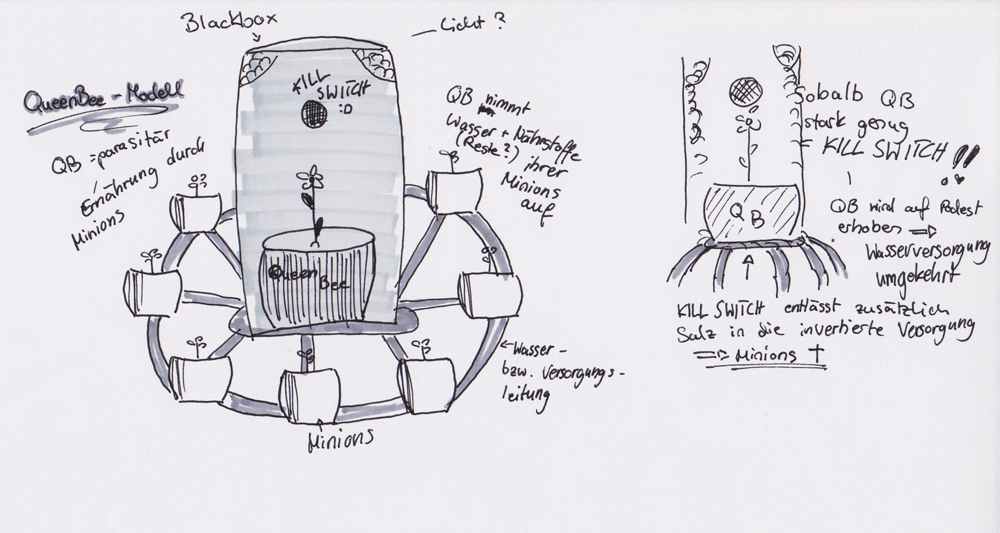 Blackbox
Licht?
QueenBee - Modell
QB = parasitär
Ernährung durch
Minions
KILL
SWITCH
:D
QB nimmt
Wasser + Nährstoffe
(Reste?) ihrer
Minions
auf
Queen
Bee
Wasser-
bzw. Versorgungs-
leitung
Minions
Sobalb QB
stark genug
KILL SWITCH !!
QB
QB wird auf Podest
erhoben ⇒
Wasserversorgung
umgekehrt
KILL SWITCH entlässt zusätzlich
Salz in die invertierte Versorgung
⇒ Minions †